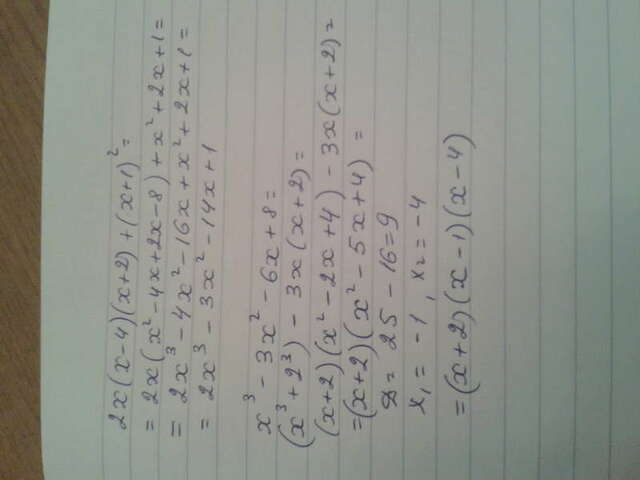 2x(x-4)(x+2)+(x+1)²=
= 2x(x²-4x+2x-8)+x²+2x+1=
= 2x³-4x²-16x+x²+2x+1=
= 2x³-3x²-14x+1
x³-3x²-6x+8=
(x³+2³)-3x(x+2)=
(x+2)(x²-2x+4)-3x(x+2)=
=(x+2)(x²-5x+4)=
D= 25-16=9
x₁=-1, x₂=-4
=(x+2)(x-1)(x-4)